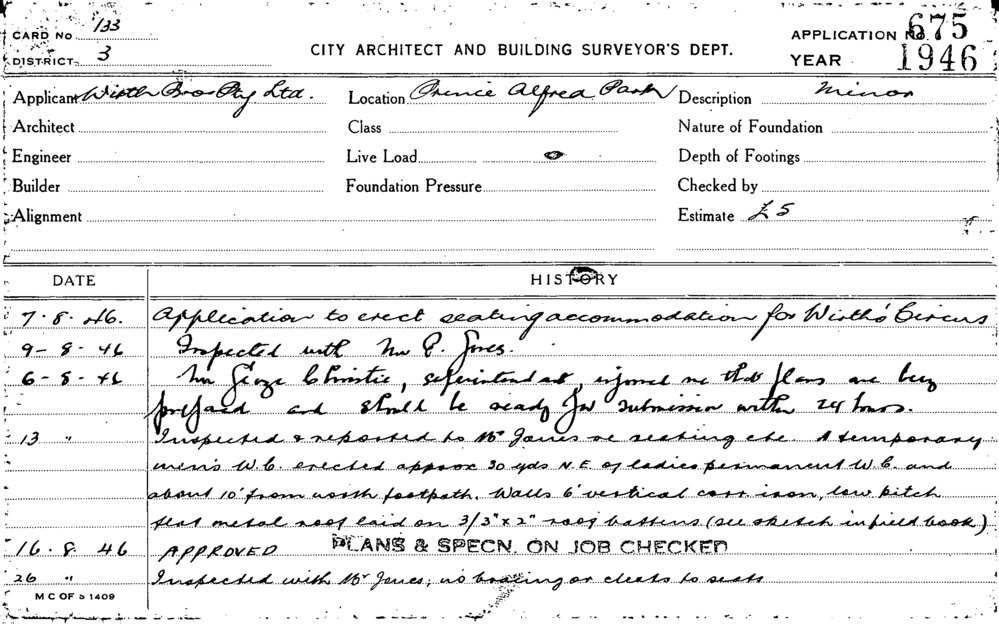 CARD No 133
DISTRICT 3
CITY ARCHITECT AND BUILDING SURVEYOR'S DEPT.
APPLICATION No. 675
YEAR 1946
Applicant Wirth Bros Pty Ltd. Location Prince Alfred Park Description Minor
Architect Class Nature of Foundation
Engineer Live Load Depth of Footings
Builder Foundation Pressure Checked by
Alignment Estimate £5
DATE HISTORY
7.8.46. Application to erect seating accommodation for Wirth's Circus
9-8-46 Inspected with Mr P. Jones.
6-8-46 Mr George Christie, superintendent, informed me that plans are being
prepared and should be ready for submission within 24 hours.
13 " Inspected & reported to Mr Jones re seating etc. A temporary
men's W.C. erected approx 30 yds N.E. of ladies permanent W.C. and
about 10' from north footpath. Walls 6' vertical corr. iron, low pitch
flat metal roof laid on 3/3" x 2" roof battens (see sketch in field book)
16.8.46 APPROVED PLANS & SPECN. ON JOB CHECKED
26 " Inspected with Mr Jones; no bracing or cleats to seats
M C OF S 1409